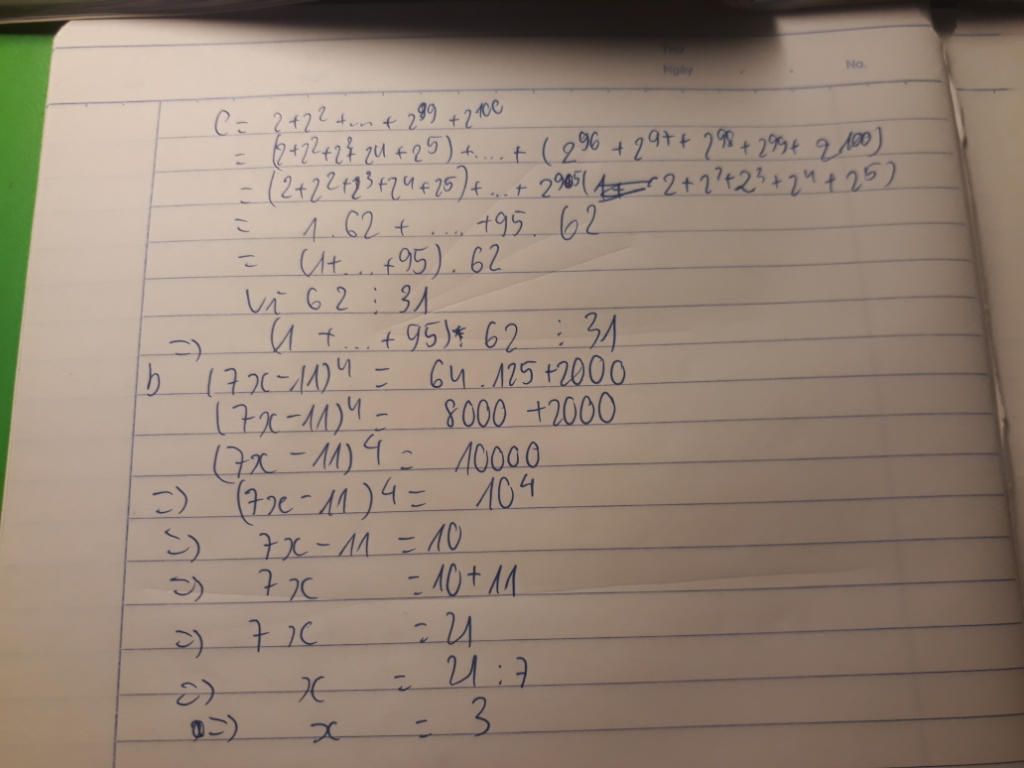 Thứ
Ngày . . No.
C = 2+2² +...+ 2⁹⁹ +2¹⁰⁰
= (2+2²+2³ 2⁴ + 2⁵) +....+ (2⁹⁶ + 2⁹⁷ + 2⁹⁸ + 2⁹⁹+ 2¹⁰⁰)
= (2+2²+2³+2⁴+25)+...+ 2⁹⁵( 2+2²+2³+2⁴+2⁵)
= 1.62 + .... +95. 62
= (1+...+95).62
Vì 62 ⋮ 31
=) (1 +...+95)* 62 ⋮ 31
b (7x-11)⁴ = 64.125+2000
(7x-11)⁴ = 8000 +2000
(7x-11)⁴ = 10000
=) (7x-11)⁴ = 10⁴
=) 7x-11 =10
=) 7x =10+11
=) 7x =21
=) x = 21:7
=) x = 3